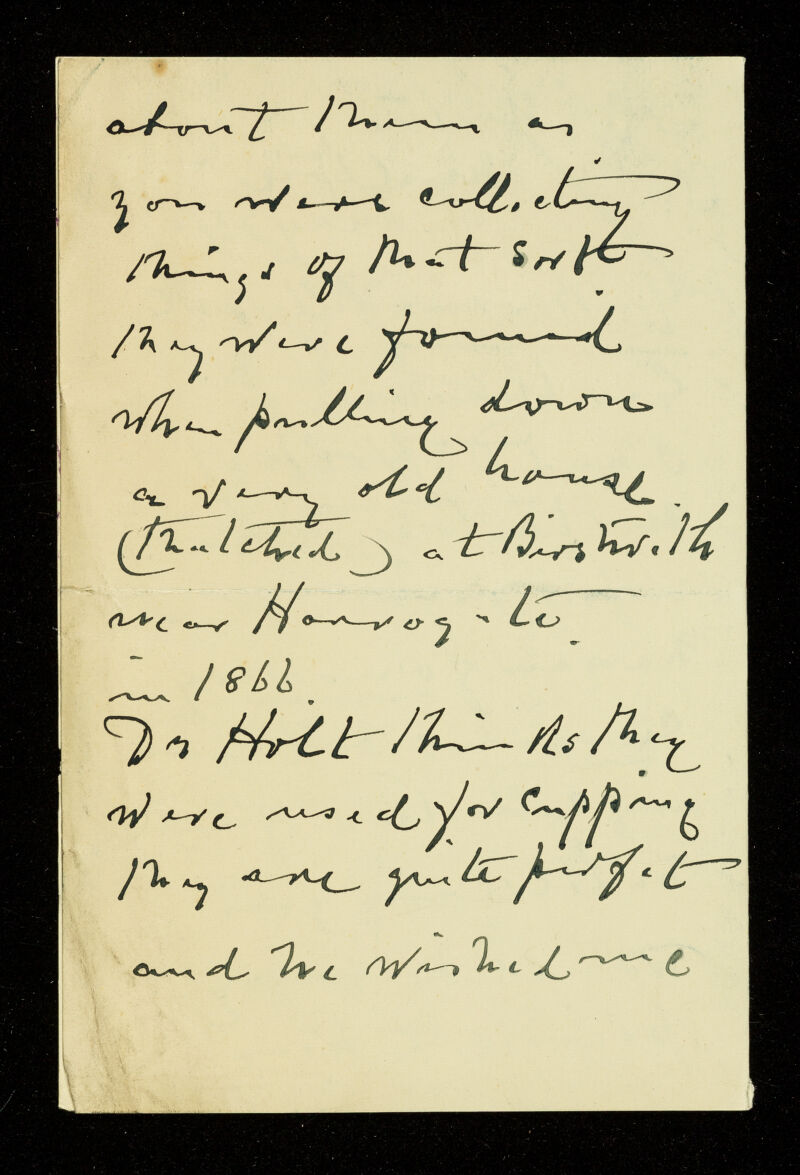 about them as
you were collecting
things of that sort
they were found
when pulling down
a very old house.
(thatched) at Birstwith
near Harrogate.
in 1866.
Dr Holt thinks they
were used for cupping
they are quite perfect
and he wished me